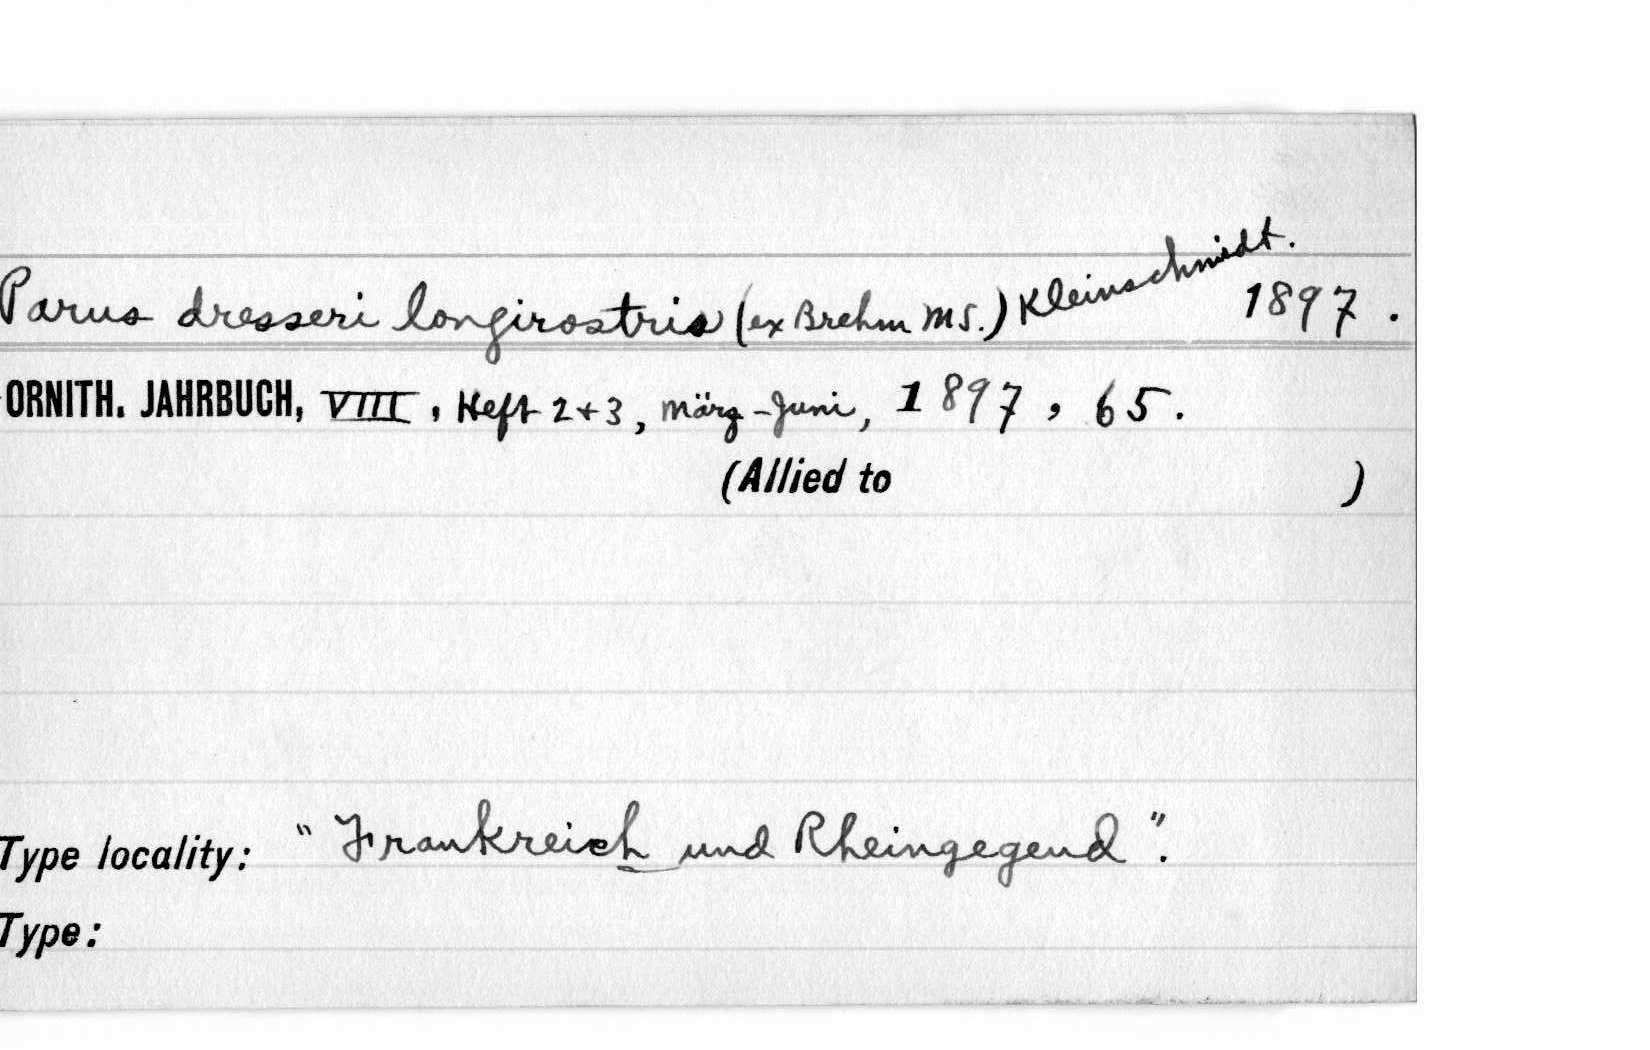 Parus dresseri longirostris (ex Brehm MS.) Kleinschmidt. 1897.
ORNITH. JAHRBUCH, VIII, Heft 2+3, März-Juni, 1897, 65.
(Allied to )
Type locality: "Frankreich und Rheingegend".
Type: